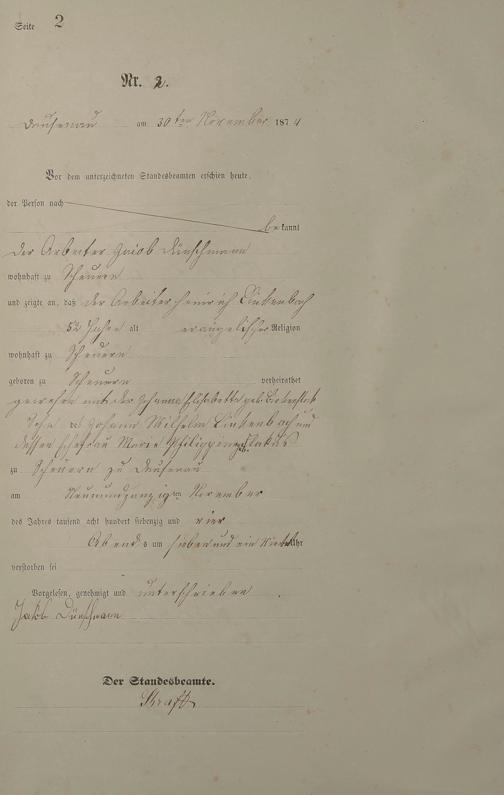 Seite 2
Nr. 2.
Dausenau am 30ten November 1874
Vor dem unterzeichneten Standesbeamten erschien heute,
der Person nach
bekannt
der Arbeiter Jacob
wohnhaft zu Scheuern
und zeigte an, daß der Arbeiter Heinrich Linkenbach
52 Jahre alt evangelischer Religion
wohnhaft zu Scheuern
geboren zu Scheuern verheirathet
gewesen mit der Johannette Elisabetha geb.
Sohn des Johann Wilhelm Linkenbach und
dessen Ehefrau Marie Philippine geb.
zu Scheuern zu Dausenau
am Neunundzwanzigten November
des Jahres tausend acht hundert siebenzig und vier
Abends um sieben und ein Viertel Uhr
verstorben sei
Vorgelesen, genehmigt und unterschrieben
Jakob Dünschmann
Der Standesbeamte.